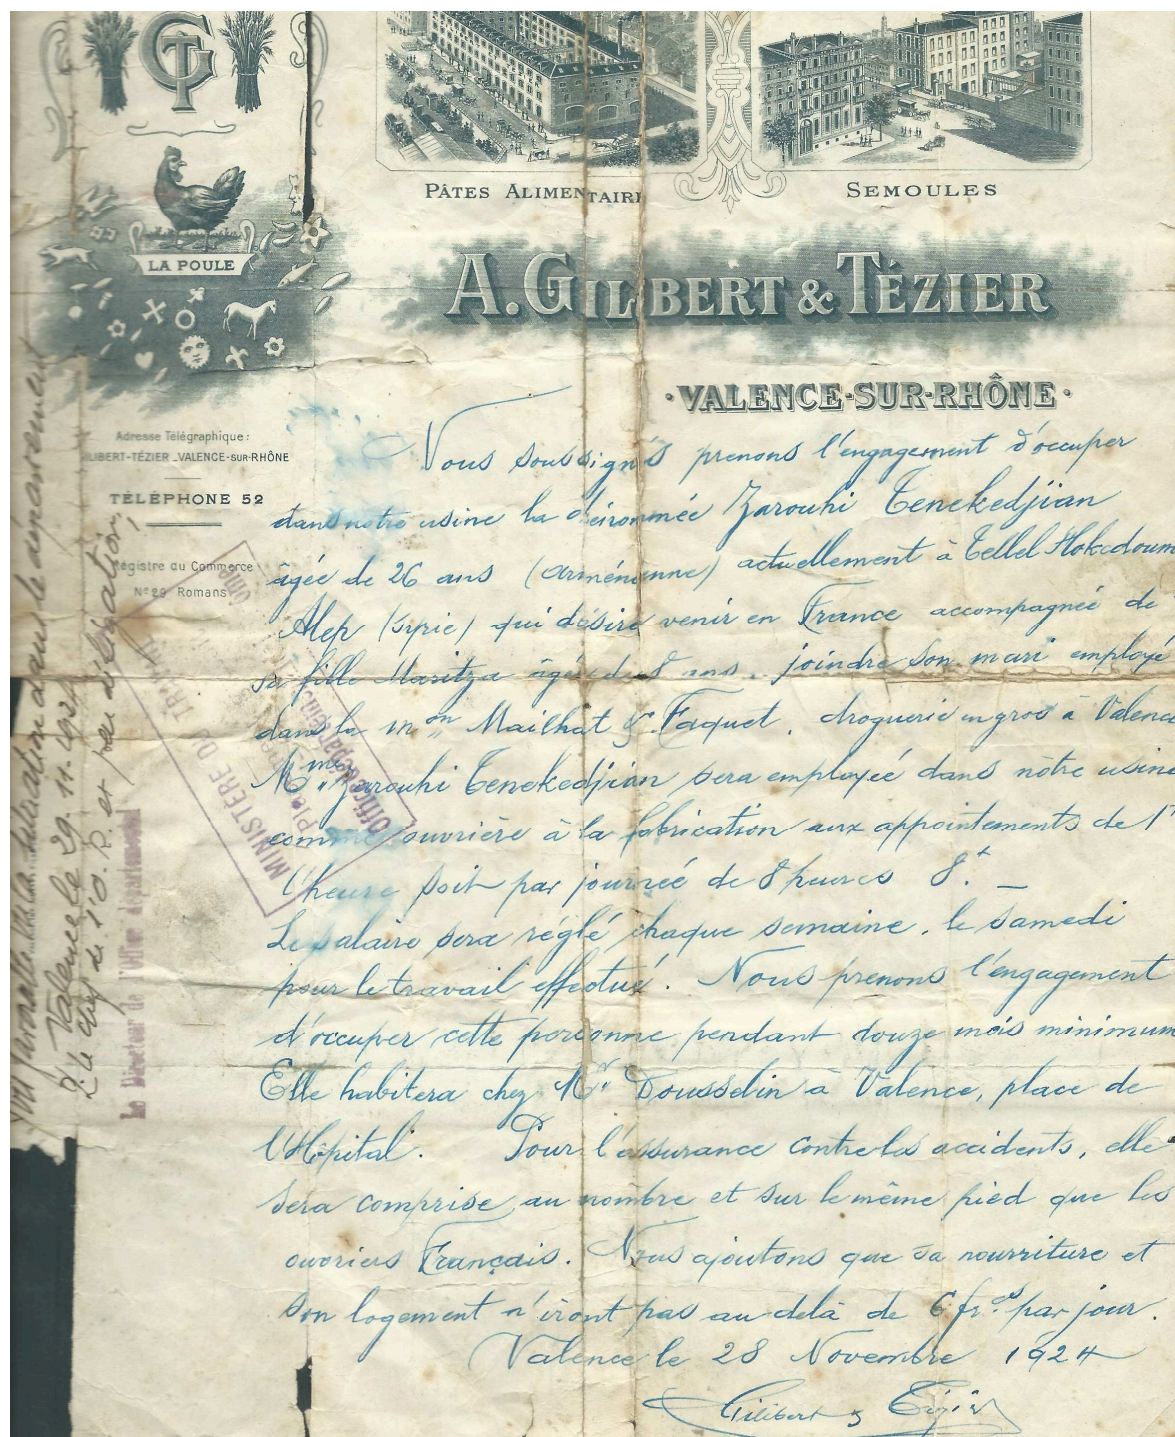 GT
PÂTES ALIMENTAIRE
SEMOULES
LA POULE
A. GILBERT & TÉZIER
·VALENCE-SUR-RHÔNE·
Adresse Télégraphique:
ILIBERT-TÉZIER_VALENCE-SUR-RHÔNE
TÉLÉPHONE 52
Régistre du Commerce
N° 29 Romans
Nous soussignés prenons l'engagement d'occuper
dans notre usine la dénommée Zarouhi Tenekedjian
âgée de 26 ans (arménienne) actuellement à Tellel Hokedoum
Alep (Syrie) qui désire venir en France accompagnée de
sa fille Maritza âgée de 8 ans. joindre son mari employé
dans la m^on Mailhat & Faquet, droguerie en gros à Valence
M^me Zarouhi Tenekedjian sera employée dans nôtre usine
comme ouvrière à la fabrication aux appointements de 1^f
l'heure soit par journée de 8 heures 8.^f _
Le salaire sera réglé chaque semaine, le samedi
pour le travail effectué. Nous prenons l'engagement
d'occuper cette personne pendant douze mois minimum
Elle habitera chez M^r Dousselin à Valence, place de
l'Hôpital. Pour l'assurance contre les accidents, elle
sera comprise au nombre et sur le même pied que les
ouvriers Français. Nous ajoutons que sa nourriture et
son logement n'iront pas au delà de 6 fr.^cs par jour.
Valence le 28 Novembre 1924
Gilibert & Tézier
MINISTÈRE DU TRAVAIL
Office départemental
Valence le 29.11.1924
P. le chef de l'O. D. et par délégation,
Le Directeur de l'Office départemental